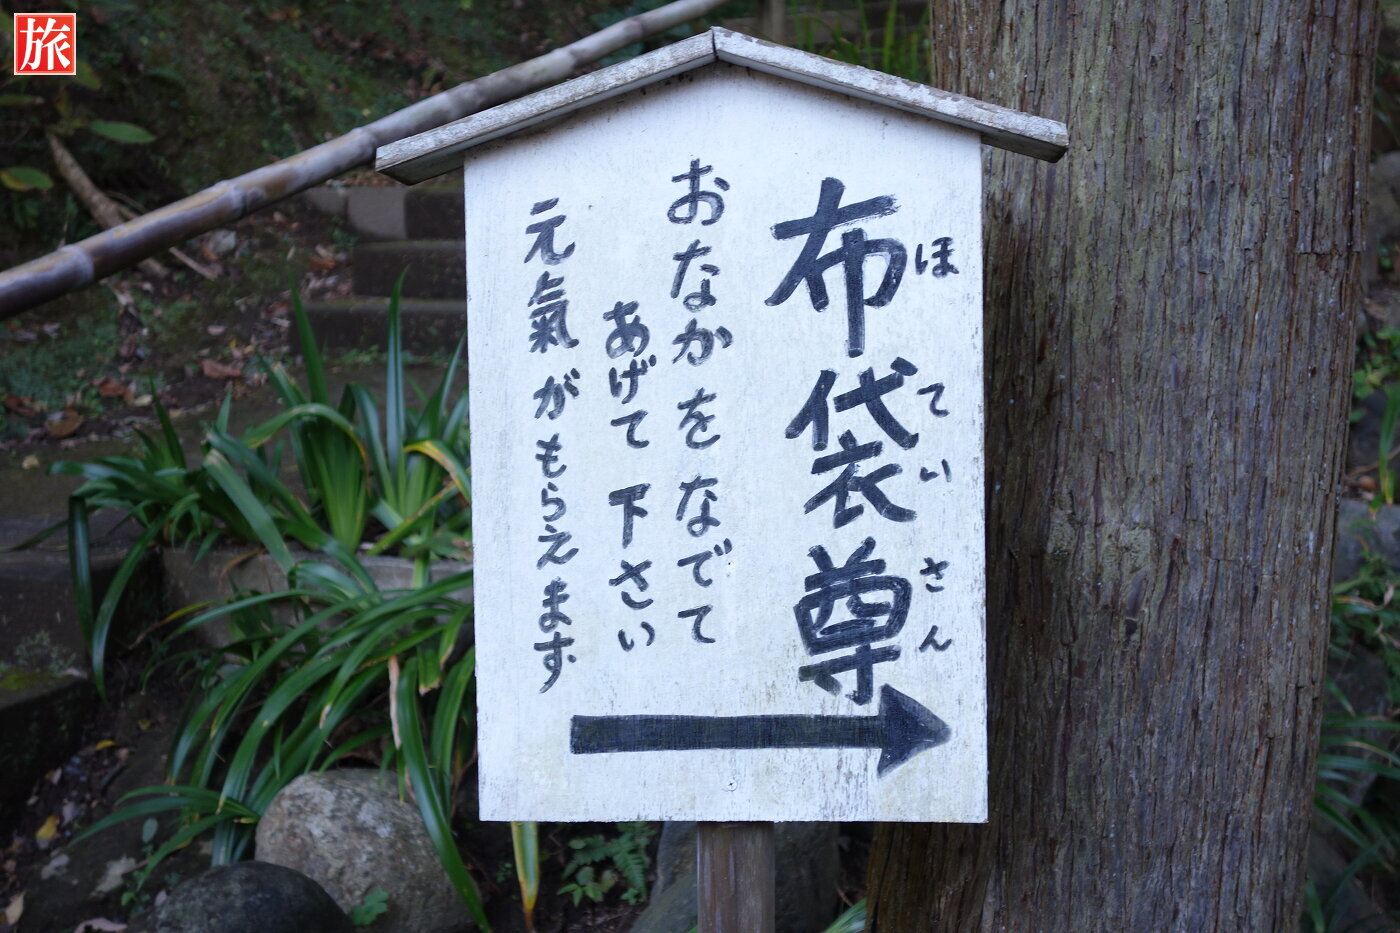 旅
布袋尊
ほていさん
おなかをなでて
あげて下さい
元氣がもらえます